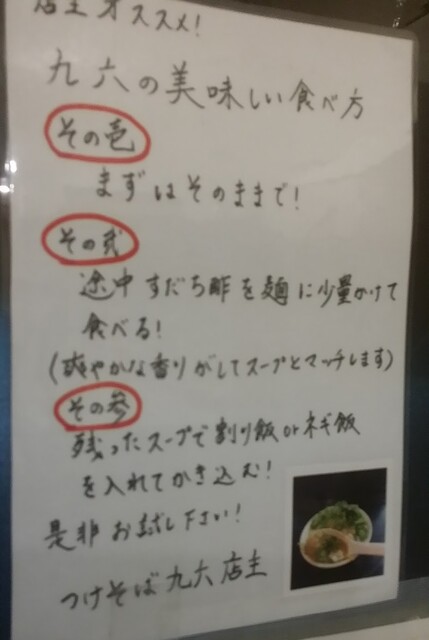 店主オススメ!
九六の美味しい食べ方
その壱
まずはそのままで!
その弐
途中すだち酢を麺に少量かけて
食べる!
(爽やかな香りがしてスープとマッチします)
その参
残ったスープで割り飯orネギ飯
を入れてかき込む!
是非お試し下さい!
つけそば九六店主